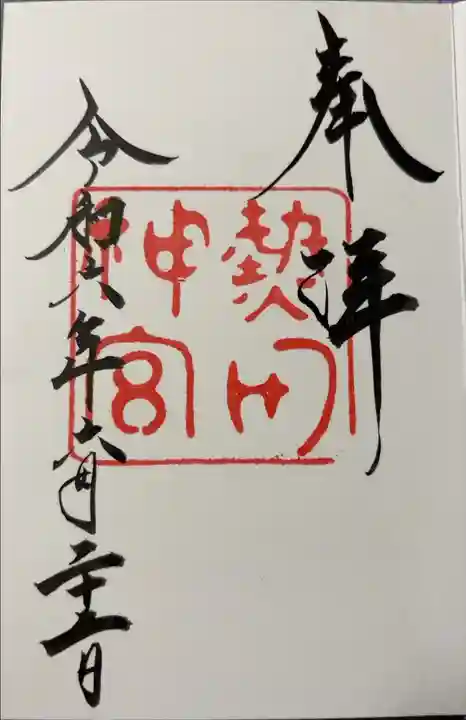 奉拝
熱田
神宮
令和六年六月二十二日